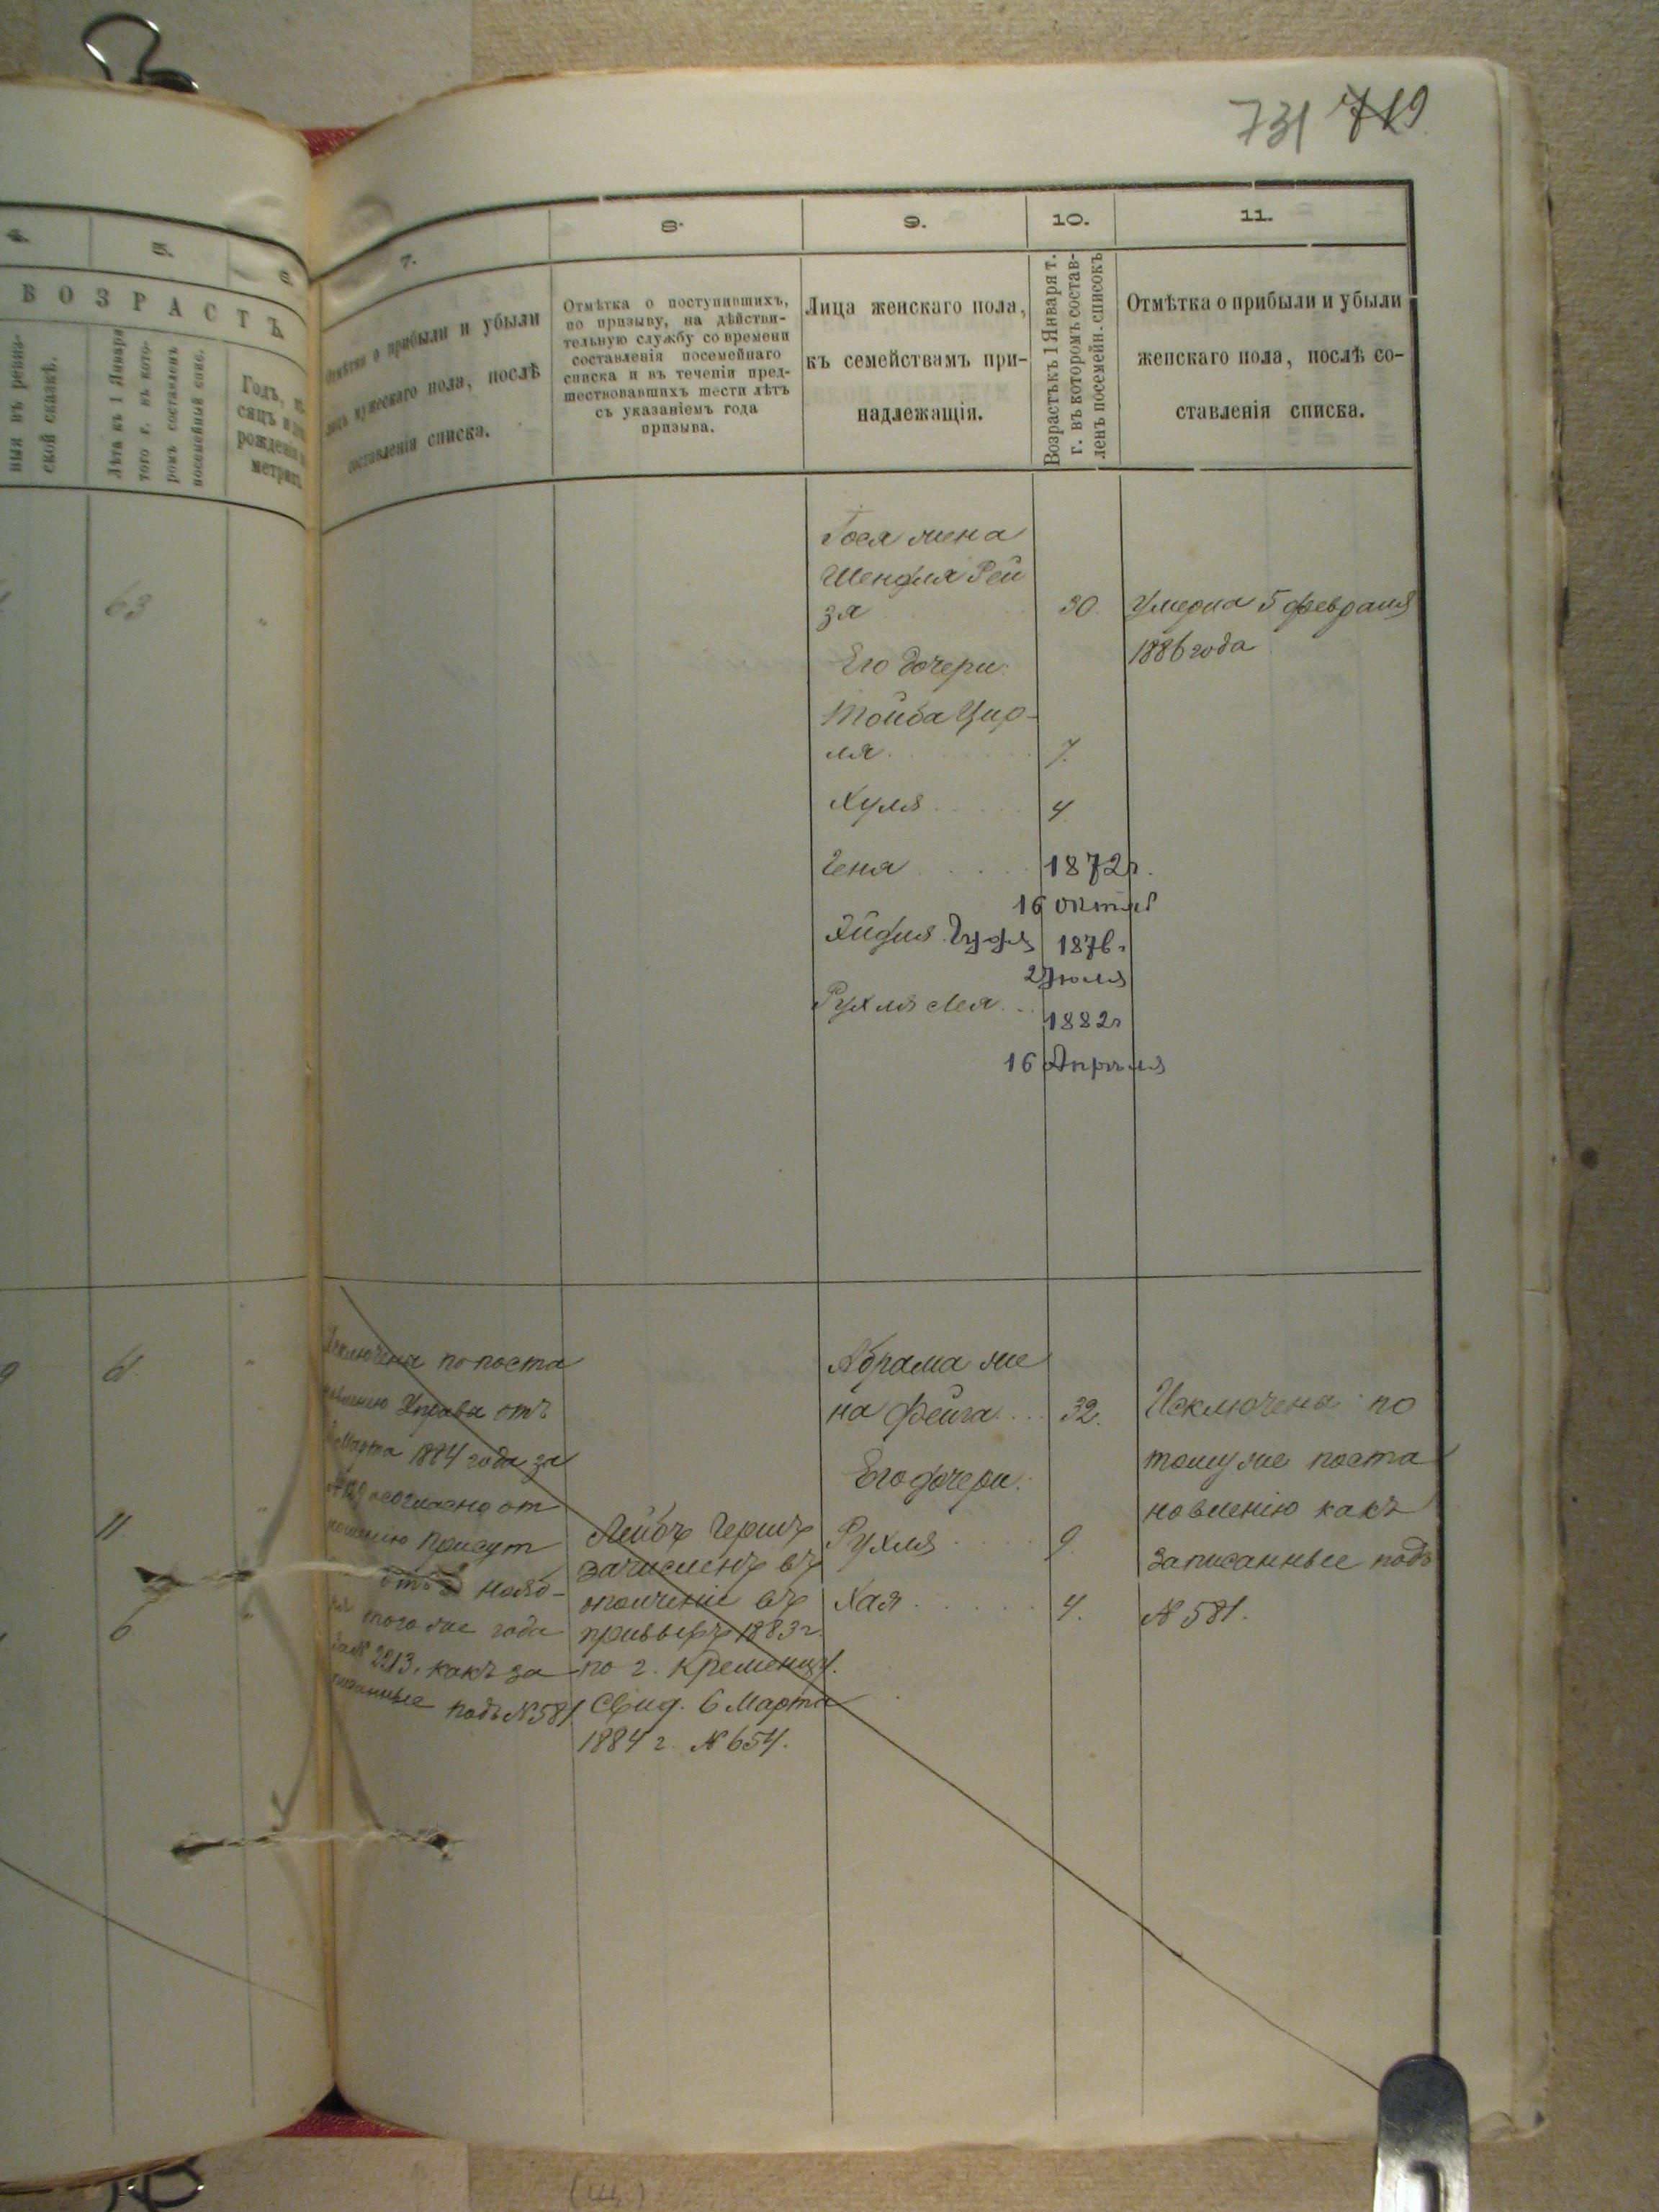 731 719
4.
5.
6.
ВОЗРАСТЪ
ныя въ ревиз-
ской сказкѣ.
Лѣта къ 1 Января
того г. въ кото-
ромъ составленъ
посемейный спис.
Годъ, мѣ-
сяцъ и
рожденія
метрич.
63
61
11
6
7.
8.
9.
10.
11.
Отмѣтка о прибыли и убыли
лицъ мужескаго пола, послѣ
составленія списка.
Отмѣтка о поступившихъ,
по призыву, на дѣйстви-
тельную службу со времени
составленія посемейнаго
списка и въ теченіи пред-
шествовавшихъ шести лѣтъ
съ указаніемъ года
призыва.
Лица женскаго пола,
къ семействамъ при-
надлежащія.
Возрастъ къ 1 Января т.
г. въ которомъ состав-
ленъ посемейн. списокъ
Отмѣтка о прибыли и убыли
женскаго пола, послѣ со-
ставленія списка.
жена
Шендля Рей
зя 30. Умерла 5 февраля
1886 года
Его дочери:
Тойба Цир-
ля 7.
Хуля 4
Геня 1872 г.
16 октяб
1876 г
2 Июля
Рухля Лея
1882 г
16 Апрѣля
Исключена по поста
новленію Управы отъ
Марта 1884 года за
согласно от
ношенію Присут
отъ нояб-
ря того же года
за № 2213, какъ за
писанные подъ № 581
Лейбъ Гершъ
зачисленъ въ
ополченіе въ
призывъ 1883 г.
по г. Кременцу.
Свид. 6 Марта
1884 г. № 654.
Абрама же
на Фейга 32.
Его дочери:
Рухля 9
Хая 4.
Исключена по
тому же поста
новленію какъ
записанные подъ
№ 581.